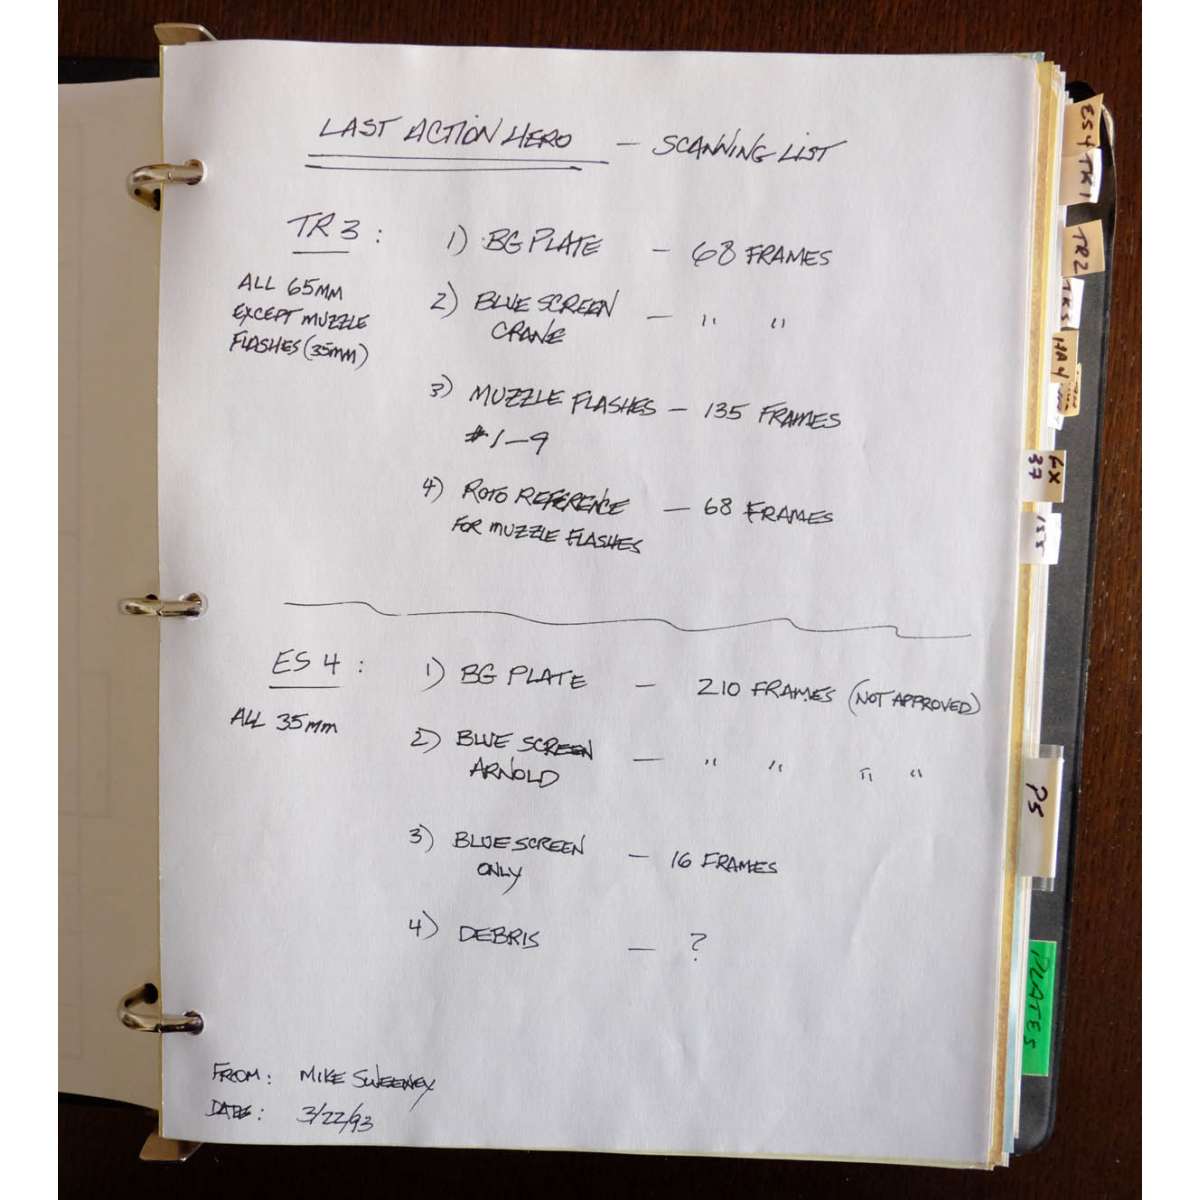 LAST ACTION HERO — SCANNING LIST
TR 3 : 1) BG PLATE — 68 FRAMES
ALL 65MM
EXCEPT MUZZLE
FLASHES (35MM)
2) BLUE SCREEN — " "
CRANE
3) MUZZLE FLASHES — 135 FRAMES
#1—9
4) ROTO REFERENCE — 68 FRAMES
FOR MUZZLE FLASHES
ES 4 : 1) BG PLATE — 210 FRAMES (NOT APPROVED)
ALL 35mm
2) BLUE SCREEN — " " " "
ARNOLD
3) BLUE SCREEN — 16 FRAMES
ONLY
4) DEBRIS — ?
FROM: MIKE SWEENEY
DATE: 3/22/93
ES 4
TR 1
TR 2
PS
PLATES